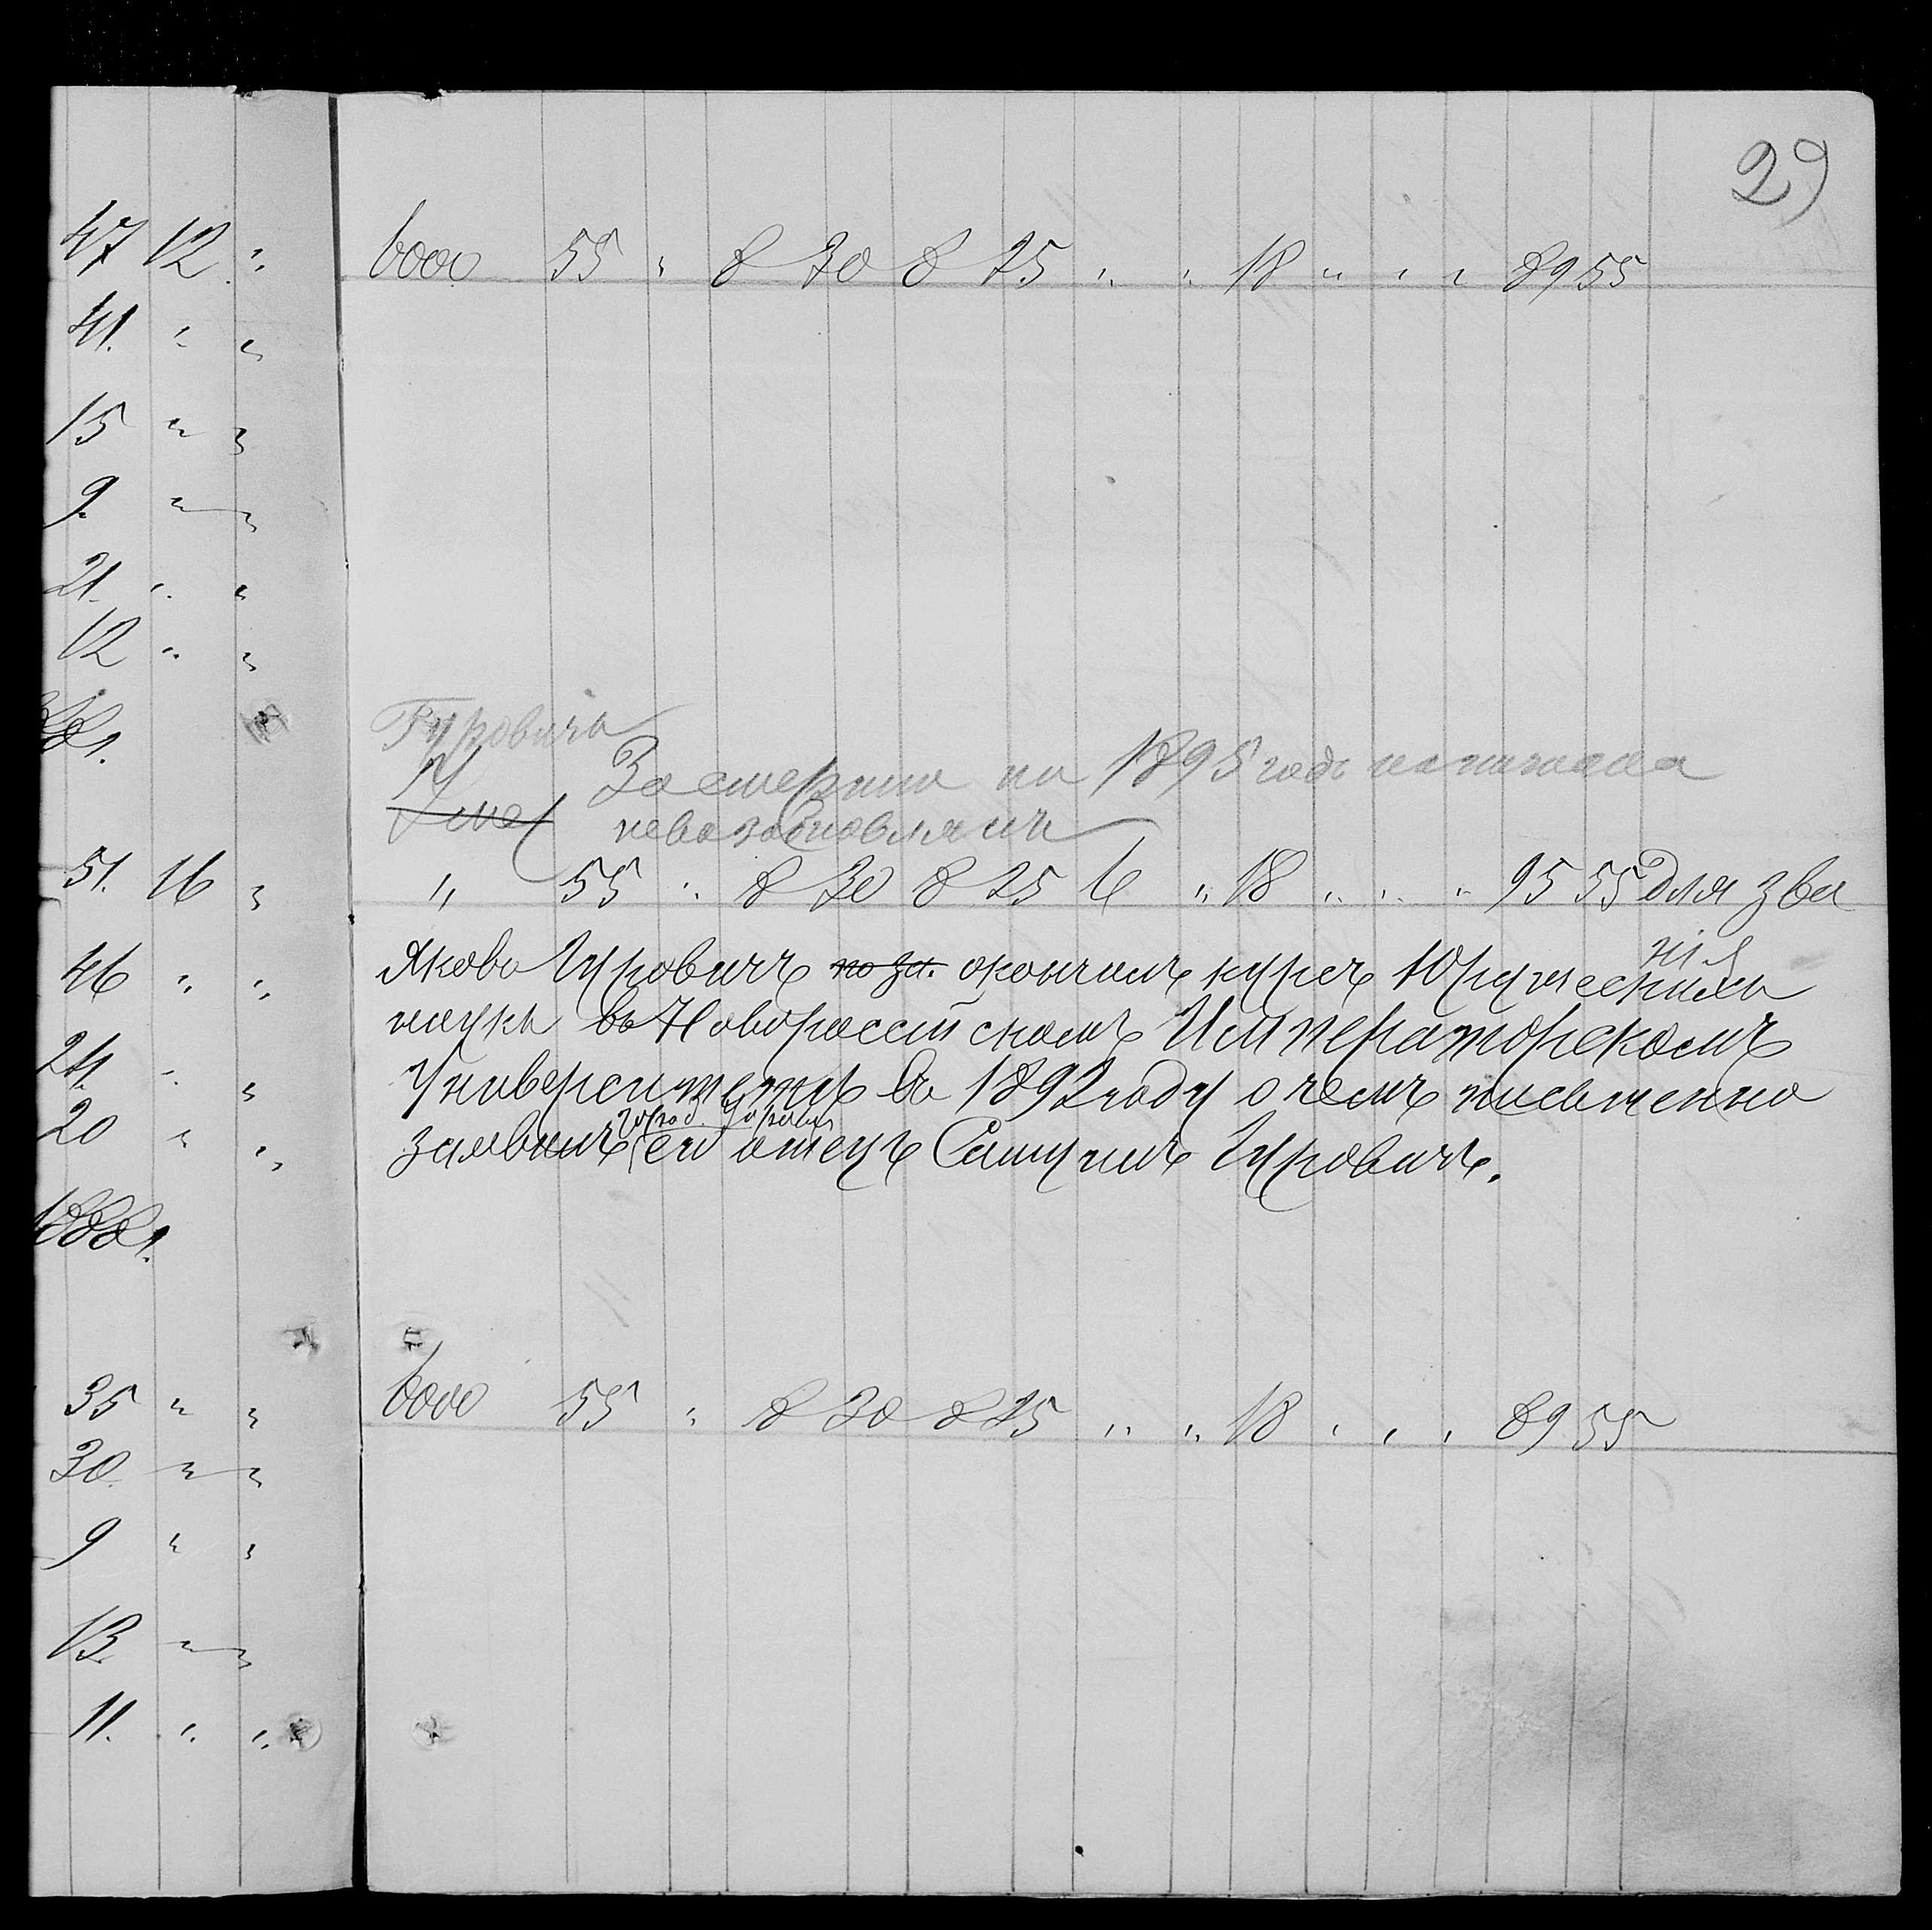 29
47 12 "
6000 55 " 8 30 8 25 " " 18 " " " 8955
41. " "
15 " "
9. " "
21. " "
12 " "
Гуровичъ
За смертию на 1895 годъ
невозобновляетъ
51. 16 "
" 55 " 8 30 8 25 6 " 18 " " " 9555 Для зва
нія
46 " "
Яковъ Гуровичъ по зн. окончилъ курсъ Юридическихъ
наукъ въ Новороссійскомъ Императорскомъ
24. " "
Университетѣ въ 1892 году о чемъ письменно
20 " "
город. Управѣ
заявилъ его отецъ Самуилъ Гуровичъ.
1888 г.
35 " "
6000 55 " 8 30 8 25 " " 18 " " " 8955
30. " "
9 " "
13. " "
11. " "